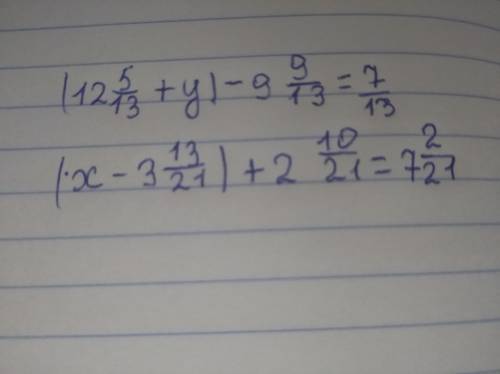 (12 5/13 + y) - 9 9/13 = 7/13
(x - 3 13/21) + 2 10/21 = 7 2/21